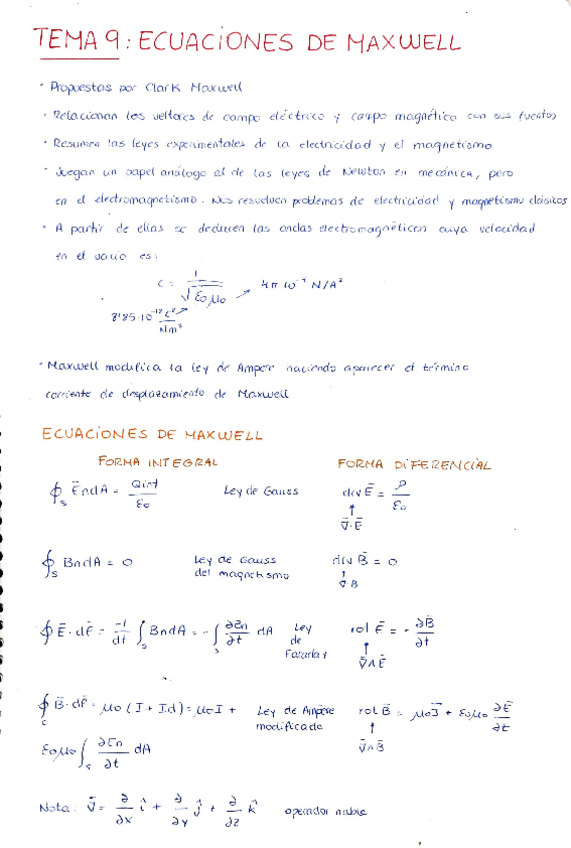 TEMA 9: ECUACIONES DE MAXWELL
· Propuestas por Clark Maxwell
· Relacionan los vectores de campo eléctrico y campo magnético con sus fuentes
· Resumen las leyes experimentales de la electricidad y el magnetismo
· Juegan un papel análogo al de las leyes de Newton en mecánica, pero
en el electromagnetismo. Nos resuelven problemas de electricidad y magnetismo clásicos
· A partir de ellas se deducen las ondas electromagnéticas cuya velocidad
en el vacío es:
c = 1/√(ε0 μ0) → 4π 10⁻⁷ N/A²
8'85·10⁻¹² C²/Nm²
· Maxwell modifica la ley de Ampere haciendo aparecer el término
corriente de desplazamiento de Maxwell
ECUACIONES DE MAXWELL
FORMA INTEGRAL FORMA DIFERENCIAL
∮s E̅ndA = Qint/ε0 Ley de Gauss div E̅ = ρ/ε0
↑
∇̅·E̅
∮s BndA = 0 Ley de Gauss del magnetismo div B̅ = 0
↑
∇·B
∮ E̅·dl̅ = -1/dt ∫s BndA = -∫s ∂Bn/∂t dA Ley de Faraday rot E̅ = - ∂B̅/∂t
↑
∇̅∧E̅
∮c B̅·dl̅ = μ0 (I + Id) = μ0I + Ley de Ampère modificada rot B̅ = μ0J̅ + ε0μ0 ∂E̅/∂t
↑
∇̅∧B̅
ε0μ0 ∫s ∂En/∂t dA
Nota: ∇̅ = ∂/∂x î + ∂/∂y ĵ + ∂/∂z k̂ operador nabla